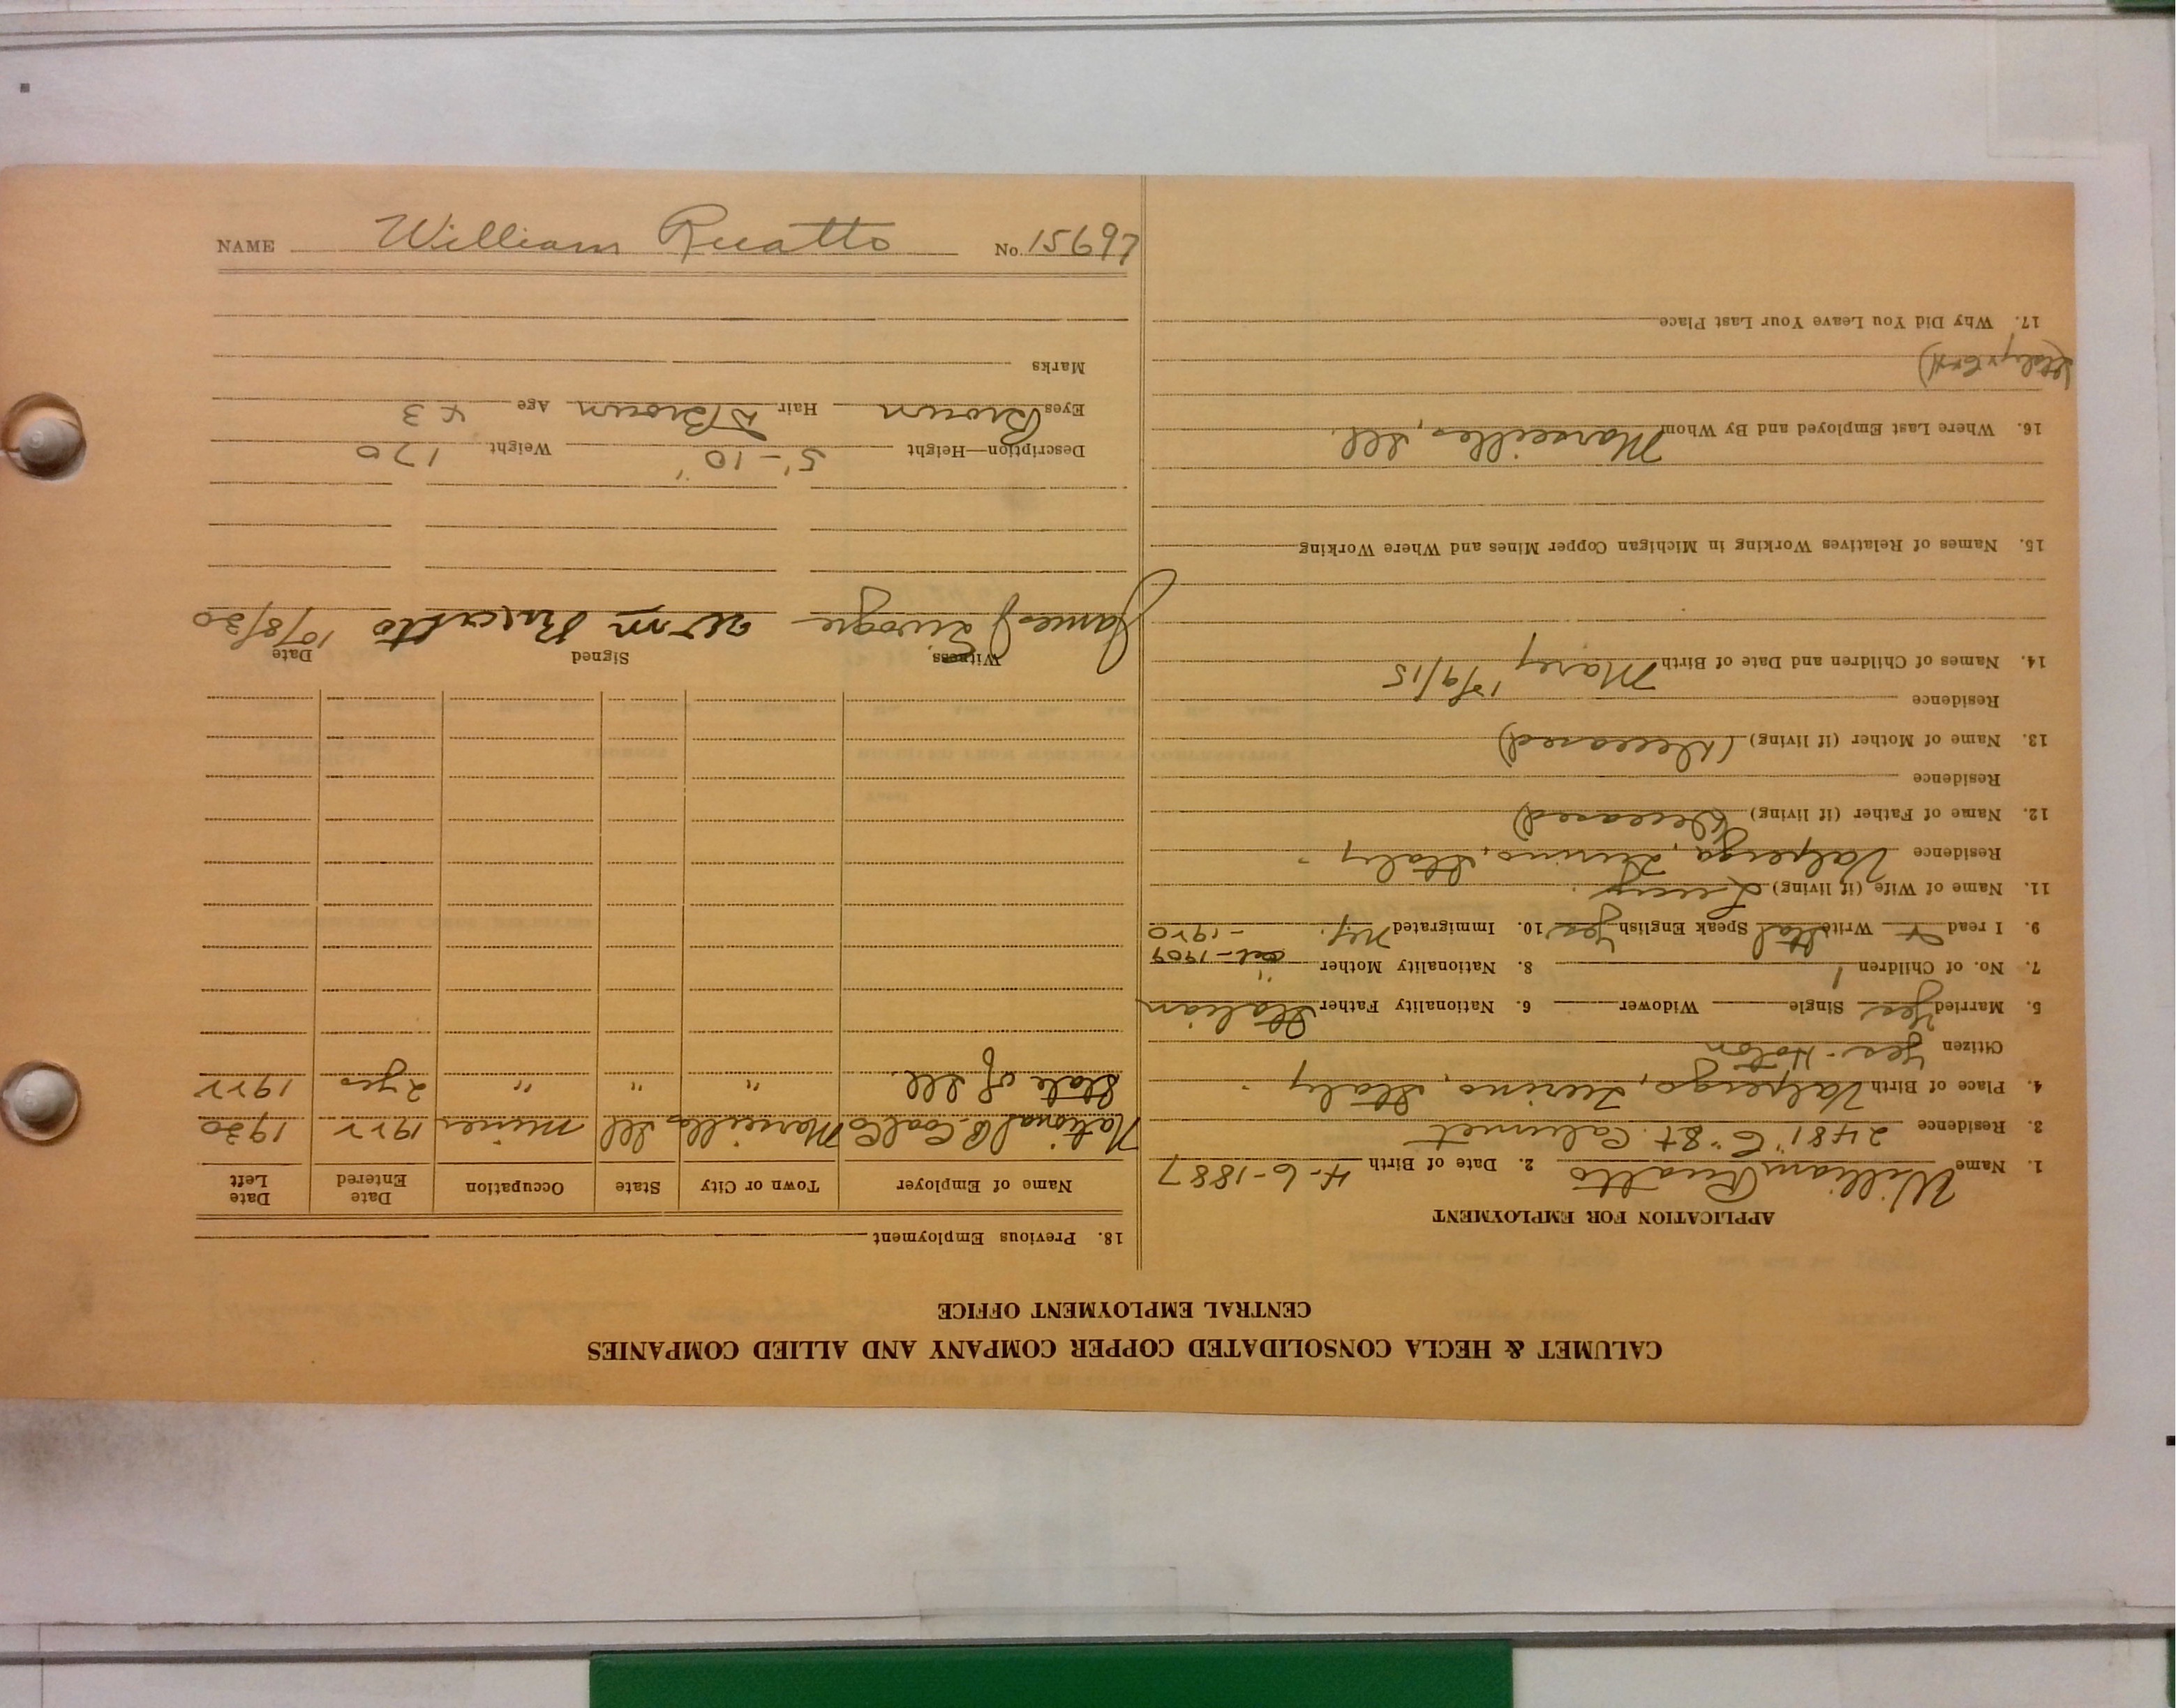 NAME William Ruatto No. 15697
CALUMET & HECLA CONSOLIDATED COPPER COMPANY AND ALLIED COMPANIES
CENTRAL EMPLOYMENT OFFICE
APPLICATION FOR EMPLOYMENT
1. Name William Ruatto 2. Date of Birth 4-6-1887
3. Residence 2481 "C" St. Calumet
4. Place of Birth Valperga, Turino, Italy
Citizen Yes -
5. Married Yes Single Widower 6. Nationality Father Italian
7. No. of Children 1 8. Nationality Mother "
Oct - 1909
9. I read & Write Ital Speak English Yes 10. Immigrated - 1920
11. Name of Wife (if living) Lucy
Residence Valperga, Turino, Italy
12. Name of Father (if living) (Deceased)
Residence
13. Name of Mother (if living) (Deceased)
Residence
14. Names of Children and Date of Birth Mary 12/9/15
15. Names of Relatives Working in Michigan Copper Mines and Where Working
16. Where Last Employed and By Whom Marseilles, Ill.
17. Why Did You Leave Your Last Place
18. Previous Employment
Name of Employer Town or City State Occupation Date Entered Date Left
National Coal Co Marseilles Ill miner 1922 1930
State of Ill. " " " 2 yrs 1922
Witness Signed Date
James Wm Ruatto 10/8/30
Description—Height 5'-10" Weight 170
Eyes Brown Hair D Brown Age 43
Marks